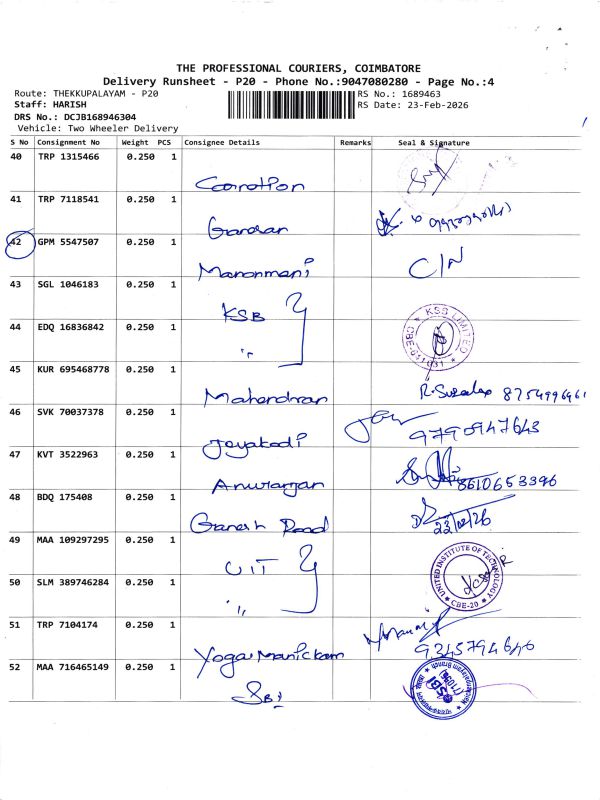 THE PROFESSIONAL COURIERS, COIMBATORE
Delivery Runsheet - P20 - Phone No.:9047080280 - Page No.:4
Route: THEKKUPALAYAM - P20 RS No.: 1689463
Staff: HARISH RS Date: 23-Feb-2026
DRS No.: DCJB168946304
Vehicle: Two Wheeler Delivery
S No Consignment No Weight PCS Consignee Details Remarks Seal & Signature
40 TRP 1315466 0.250 1
41 TRP 7118541 0.250 1
42 GPM 5547507 0.250 1 Manonmani C/N
43 SGL 1046183 0.250 1 KSB
44 EDQ 16836842 0.250 1 " KSB LIMITED CBE-641031
45 KUR 695468778 0.250 1 Mahendran 8754996961
46 SVK 70037378 0.250 1 Jeyakodi 9790947643
47 KVT 3522963 0.250 1 Anurargan 8610653396
48 BDQ 175408 0.250 1 Ganesh Road 23/02/26
49 MAA 109297295 0.250 1 UIT
50 SLM 389746284 0.250 1 " UNITED INSTITUTE OF TECHNOLOGY CBE-20
51 TRP 7104174 0.250 1 Yoga Manickam 9345794646
52 MAA 716465149 0.250 1 SBI SBI